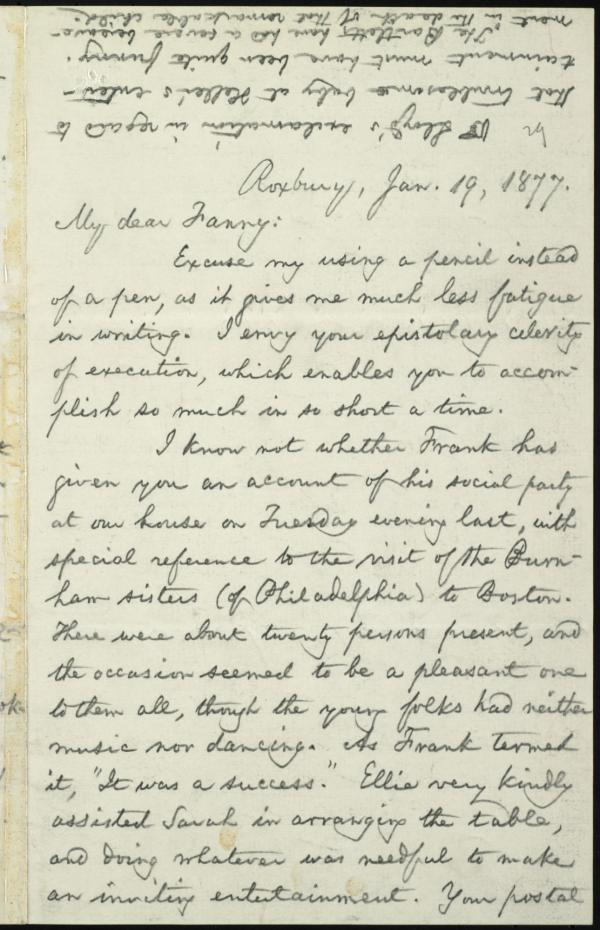 Lloyd's exclamation in regard to
that troublesome baby at Heller's enter-
tainment must have been quite funny.
The Bartletts have had a severe bereave-
ment in the death of that remarkable child.
Roxbury, Jan. 19, 1877.
My dear Fanny:
Excuse my using a pencil instead
of a pen, as it gives me much less fatigue
in writing. I envy your epistolary celerity
of execution, which enables you to accom-
plish so much in so short a time.
I know not whether Frank has
given you an account of his social party
at our house on Tuesday evening last, with
special reference to the visit of the Burn-
ham sisters (of Philadelphia) to Boston.
There were about twenty persons present, and
the occasion seemed to be a pleasant one
to them all, though the young folks had neither
music nor dancing. As Frank termed
it, "It was a success." Ellie very kindly
assisted Sarah in arranging the table,
and doing whatever was needful to make
an inviting entertainment. Your postal